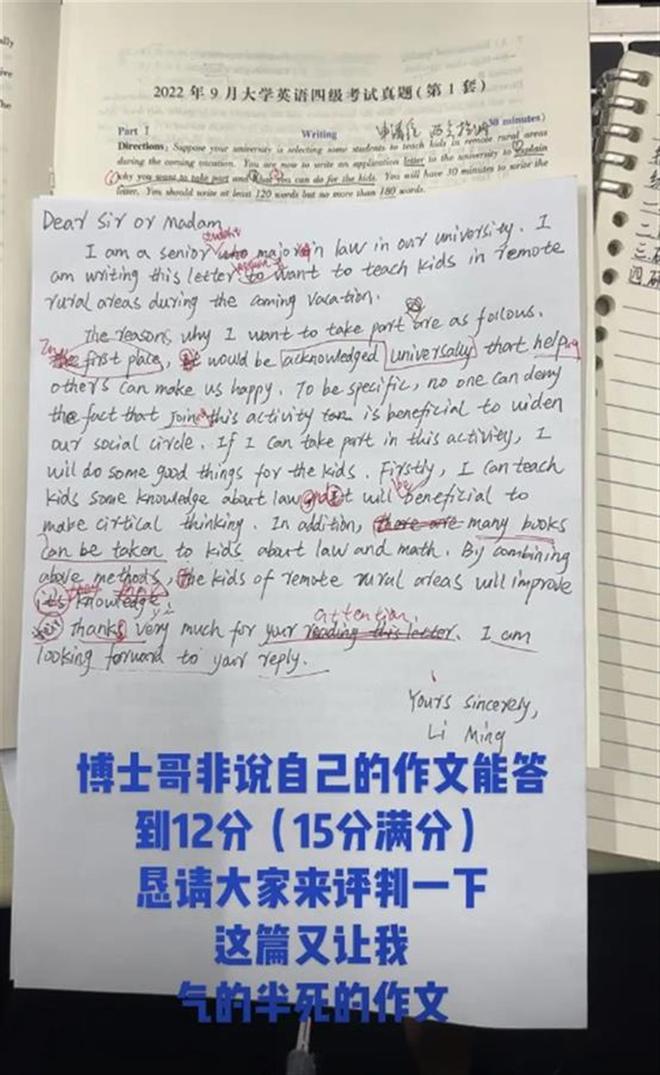 2022年9月大学英语四级考试真题(第1套)
Part I Writing 申请信 西部支教 30 minutes)
Directions: Suppose your university is selecting some students to teach kids in remote rural areas
during the coming vacation. You are now to write an application letter to the university to explain
why you want to take part and what you can do for the kids. You will have 30 minutes to write the
letter. You should write at least 120 words but no more than 180 words.
Dear Sir or Madam
student
I am a senior who major in law in our university. I
am writing this letter to want to teach kids in remote
rural areas during the coming vacation.
The reasons why I want to take part are as follows.
In the first place, it would be acknowledged universally that helping
others can make us happy. To be specific, no one can deny
the fact that join this activity is beneficial to widen
our social circle. If I can take part in this activity, I
will do some good things for the kids. Firstly, I can teach
kids some knowledge about law and it will be beneficial to
make cirtical thinking. In addition, there are many books
can be taken to kids about law and math. By combining
above methods, the kids of remote rural areas will improve
it's knowledge.
attention
Thanks very much for your reading this letter. I am
looking forward to your reply.
Yours sincerely,
Li Ming
博士哥非说自己的作文能答
到12分（15分满分）
恳请大家来评判一下
这篇又让我
气的半死的作文